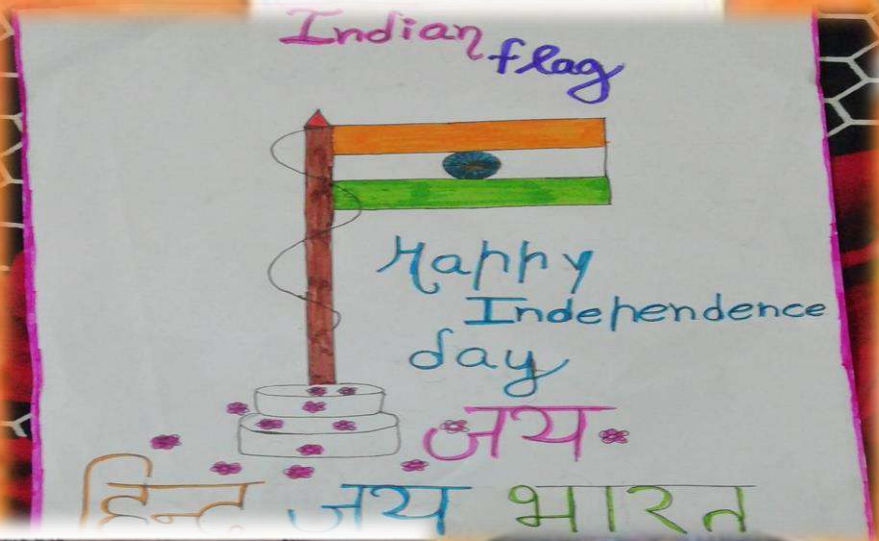 Indian flag
Happy
Independence
day
जय
हिन्द जय भारत